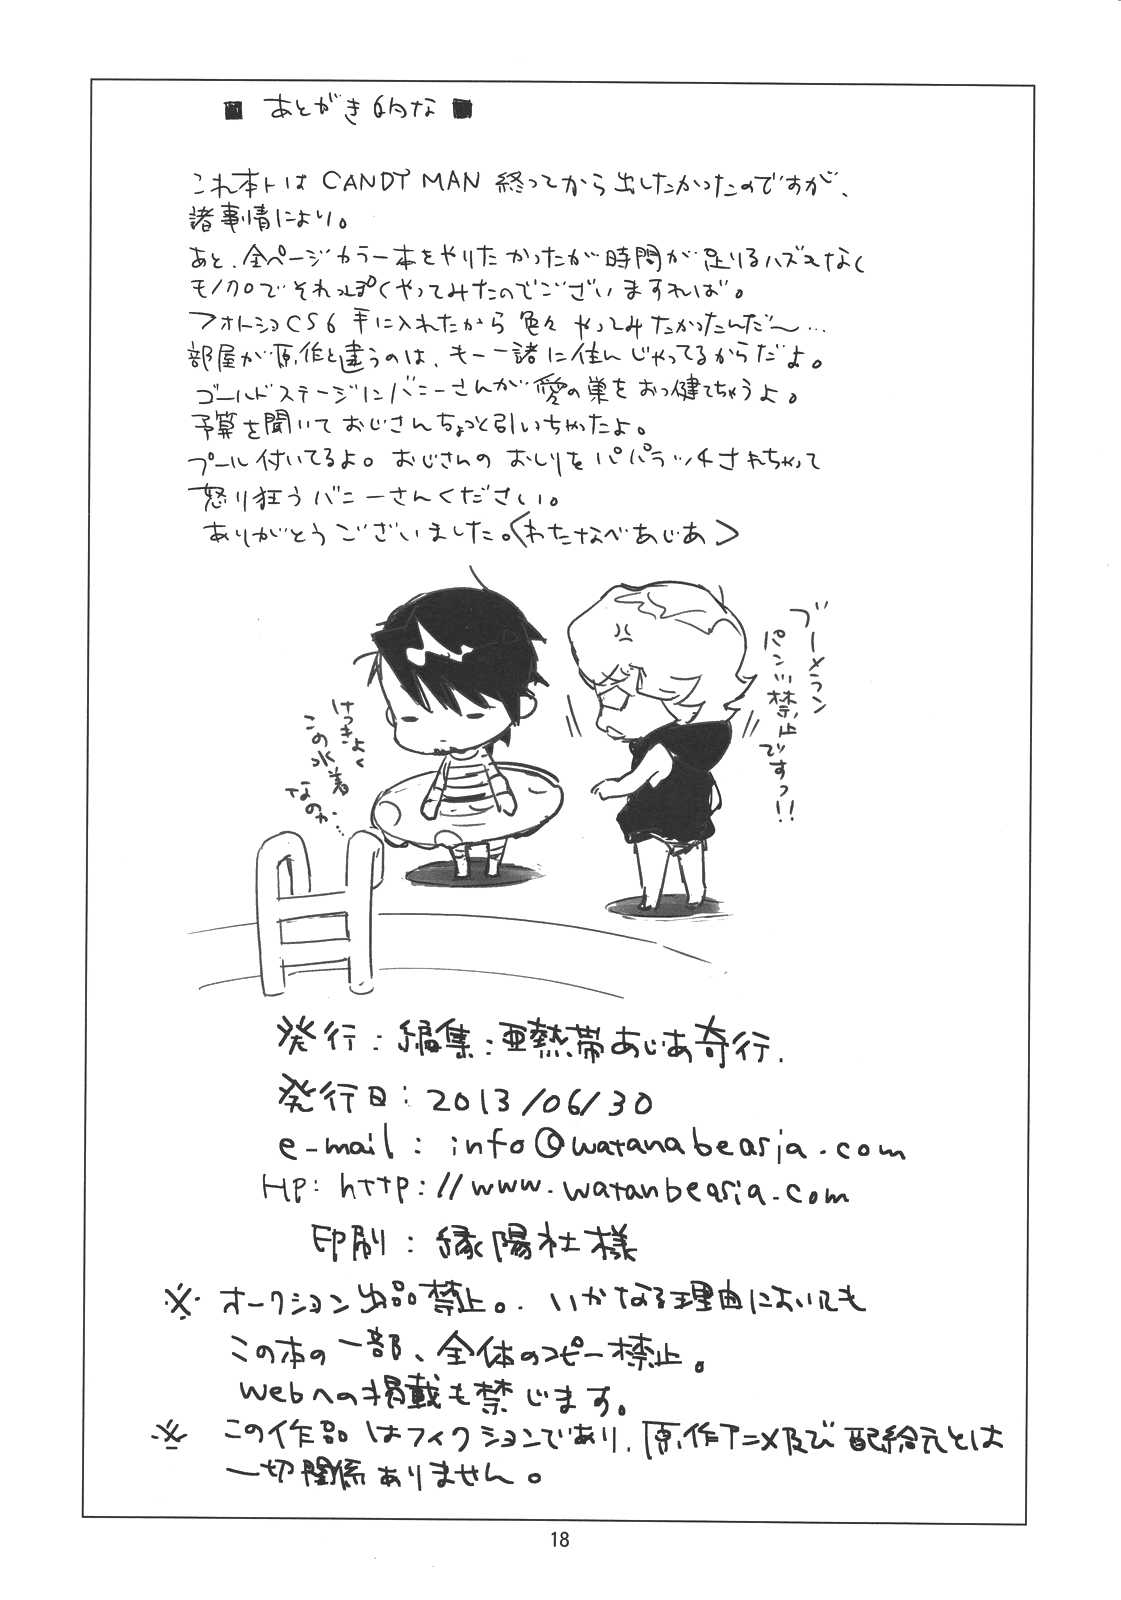 ■ あとがき的な ■
これ本トは CANDY MAN 終ってから出したかったのですが、
諸事情により。
あと、全ページカラー本をやりたかったが時間が足りるハズもなく
モノクロでそれっぽくやってみたのでございますれば。
フォトショCS6手に入れたから色々やってみたかったんだ〜…
部屋が原作と違うのは、もー一諸に住んじゃってるからだよ。
ゴールドステージにバニーさんが愛の巣をおっ健てちゃうよ。
予算を聞いておじさんちょっと引いちゃったよ。
プール付いてるよ。おじさんのおしりをパパラッチされちゃって
怒り狂うバニーさんください。
ありがとうございました。<わたなべあじあ>
ブーメラン
パンツ禁止
ですっ!!
けっきょく
この水着
なのか…
発行:編集:亜熱帯あじあ奇行.
発行日:2013/06/30
e-mail: info@watanabeasia.com
HP: http://www.watanbeasia.com
印刷:縁陽社様
※ オークション出品禁止。. いかなる理由においても
この本の一部、全体のコピー禁止。
webへの掲載も禁じます。
※ この作品はフィクションであり、原作アニメ及び配給元とは
一切関係ありません。
18